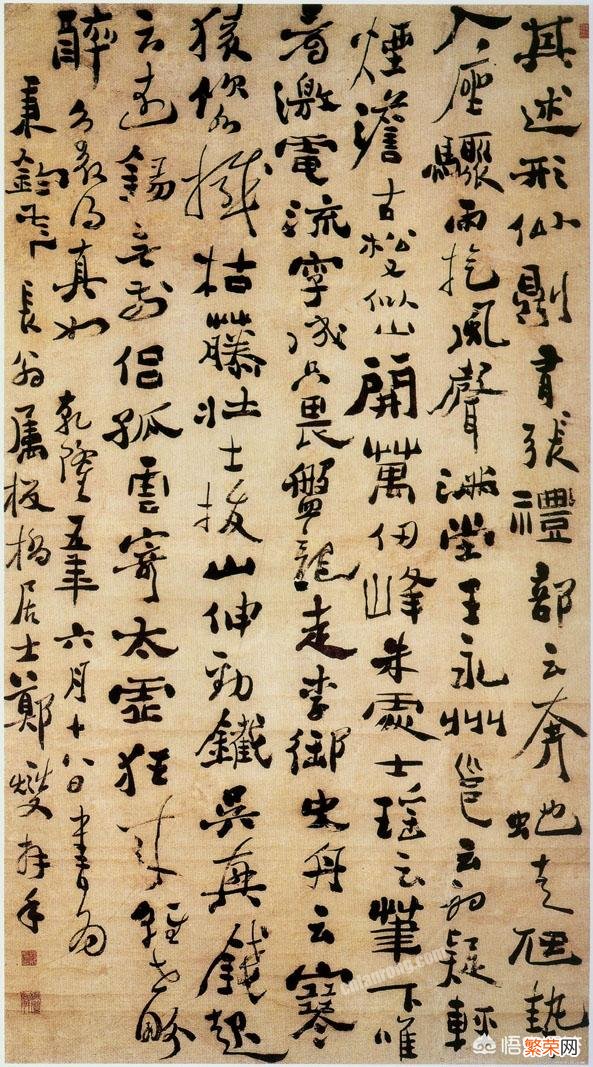 其述形似則有張禮部云奔虵走虺勢
入座驟雨旋風聲滿堂王永州邕云初疑輕
煙澹古松又似山開萬仞峰朱處士瑤云筆下唯
看激電流字成只畏盤龍走李御史舟云寒
猿飲水撼枯藤壯士拔山伸勁鐵吳興錢起
云遠錫無前侶孤雲寄太虛狂來輕世界
醉裏得真如 乾隆五年六月十八日書為
秉鈞 長翁屬板橋居士鄭燮拜手
cnfanrong.com
繁荣网